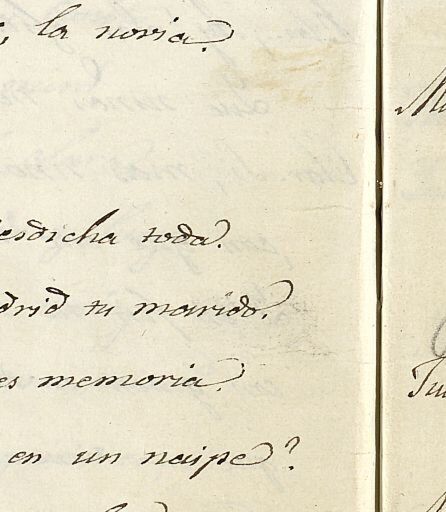 la novia.
esdicha toda.
drid tu marido.
es memoria.
en un naipe?